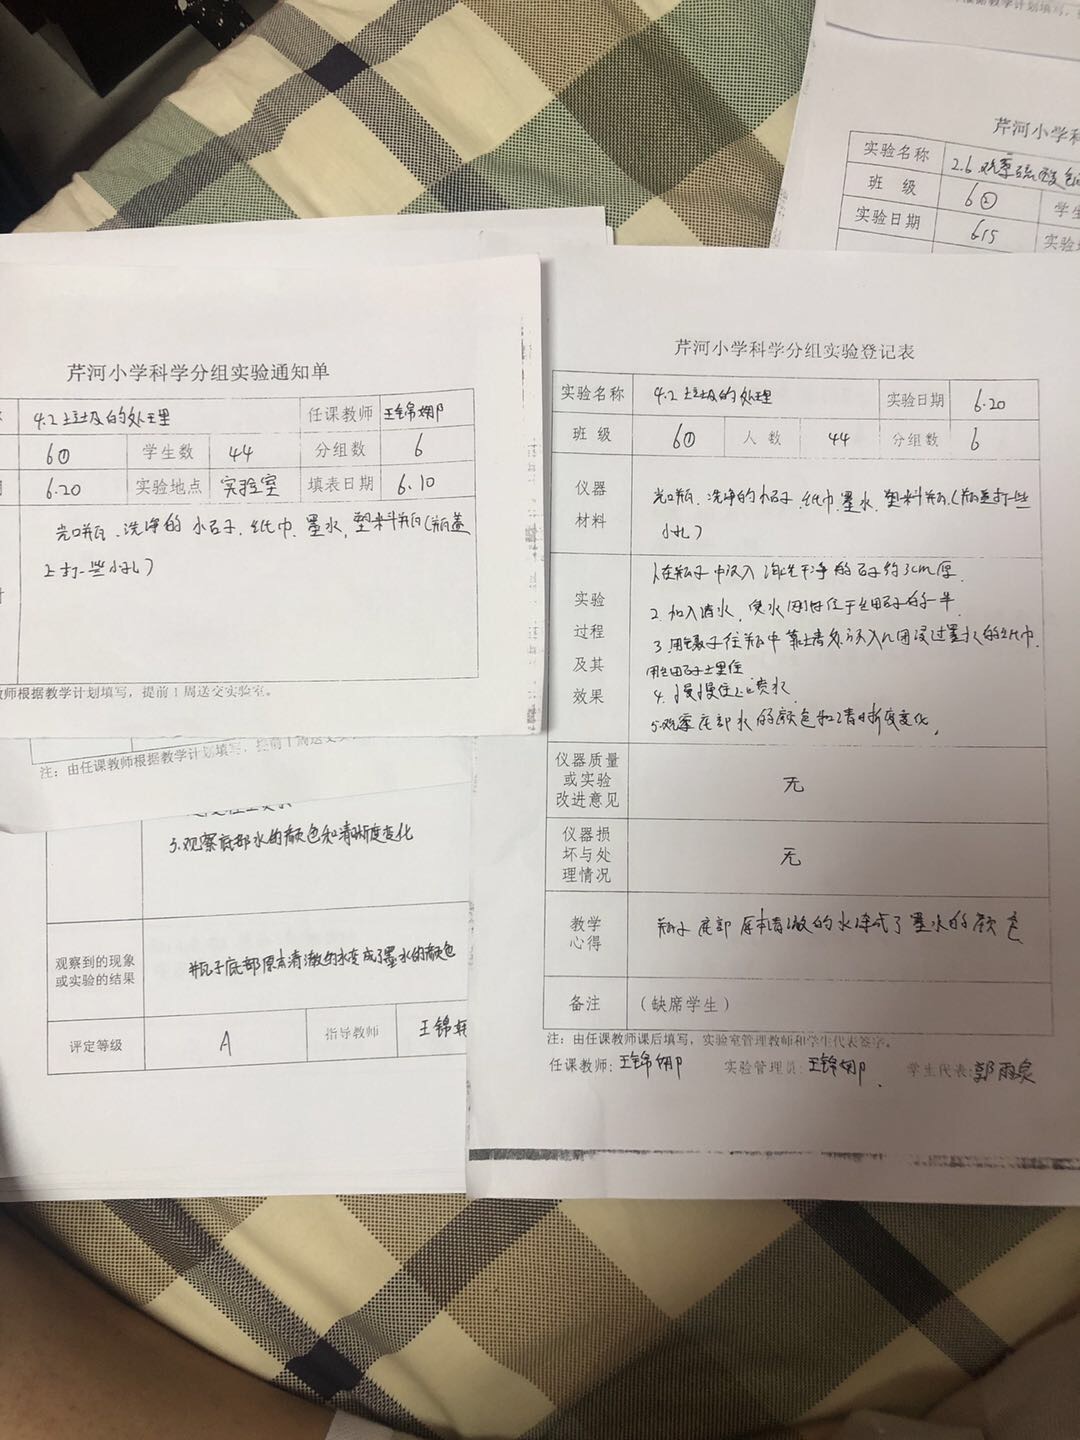 师根据教学计划填写,
芹河小学科
实验名称 2.6 观察硫酸
班 级 6② 学生
实验日期 6.15 实验
芹河小学科学分组实验通知单
4.2 垃圾的处理 任课教师 王锦翎
6① 学生数 44 分组数 6
6.20 实验地点 实验室 填表日期 6.10
光口瓶、洗净的小石子、纸巾、墨水、塑料瓶(瓶盖
上打一些小孔)
教师根据教学计划填写,提前1周送交实验室。
注:由任课教师根据教学计划填写,提前1周送交
5.观察底部水的颜色和清晰度变化
观察到的现象
或实验的结果
瓶子底部原本清澈的水变成了墨水的颜色
评定等级 A 指导教师 王锦
芹河小学科学分组实验登记表
实验名称 4.2 垃圾的处理 实验日期 6.20
班 级 6① 人 数 44 分组数 6
仪器
材料
光口瓶、洗净的小石子、纸巾、墨水、塑料瓶(瓶盖打一些
小孔)
实验
过程
及其
效果
1.在瓶子中放入清洗干净的石子约3cm厚.
2.加入清水,使水刚好位于石子的一半
3.用镊子往瓶中靠边放入几团浸过墨水的纸巾.
用石子埋住
4.慢慢往上喷水
5.观察底部水的颜色和清晰度变化.
仪器质量
或实验
改进意见
无
仪器损
坏与处
理情况
无
教学
心得
瓶子底部原本清澈的水变成了墨水的颜色
备注 (缺席学生)
注:由任课教师课后填写,实验室管理教师和学生代表签字。
任课教师:王锦翎 实验管理员:王锦翎 学生代表:郭雨泉